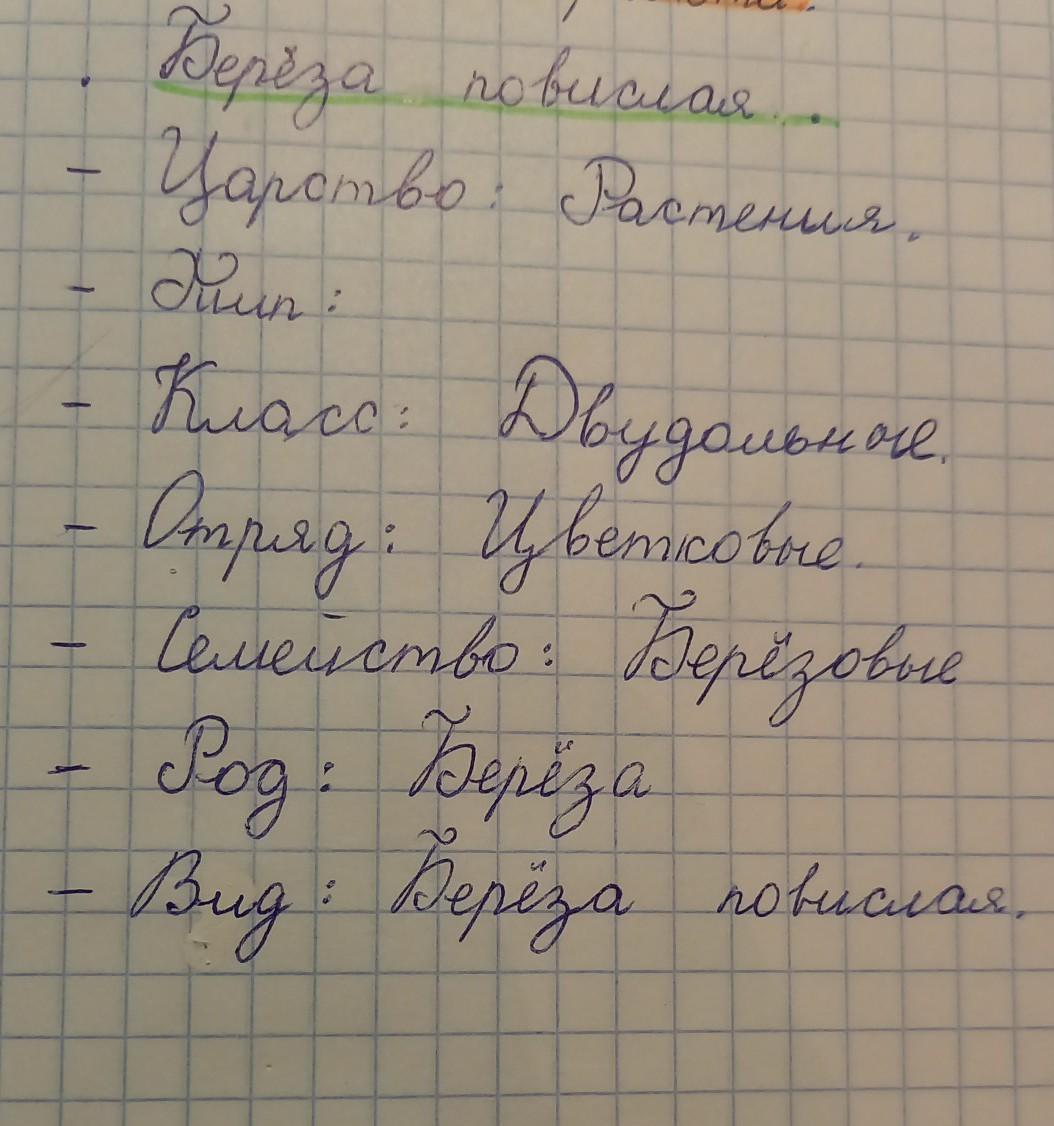 . Берёза повислая.
- Царство: Растения.
- Тип:
- Класс: Двудольные.
- Отряд: Цветковые.
- Семейство: Берёзовые
- Род: Берёза
- Вид: Берёза повислая.